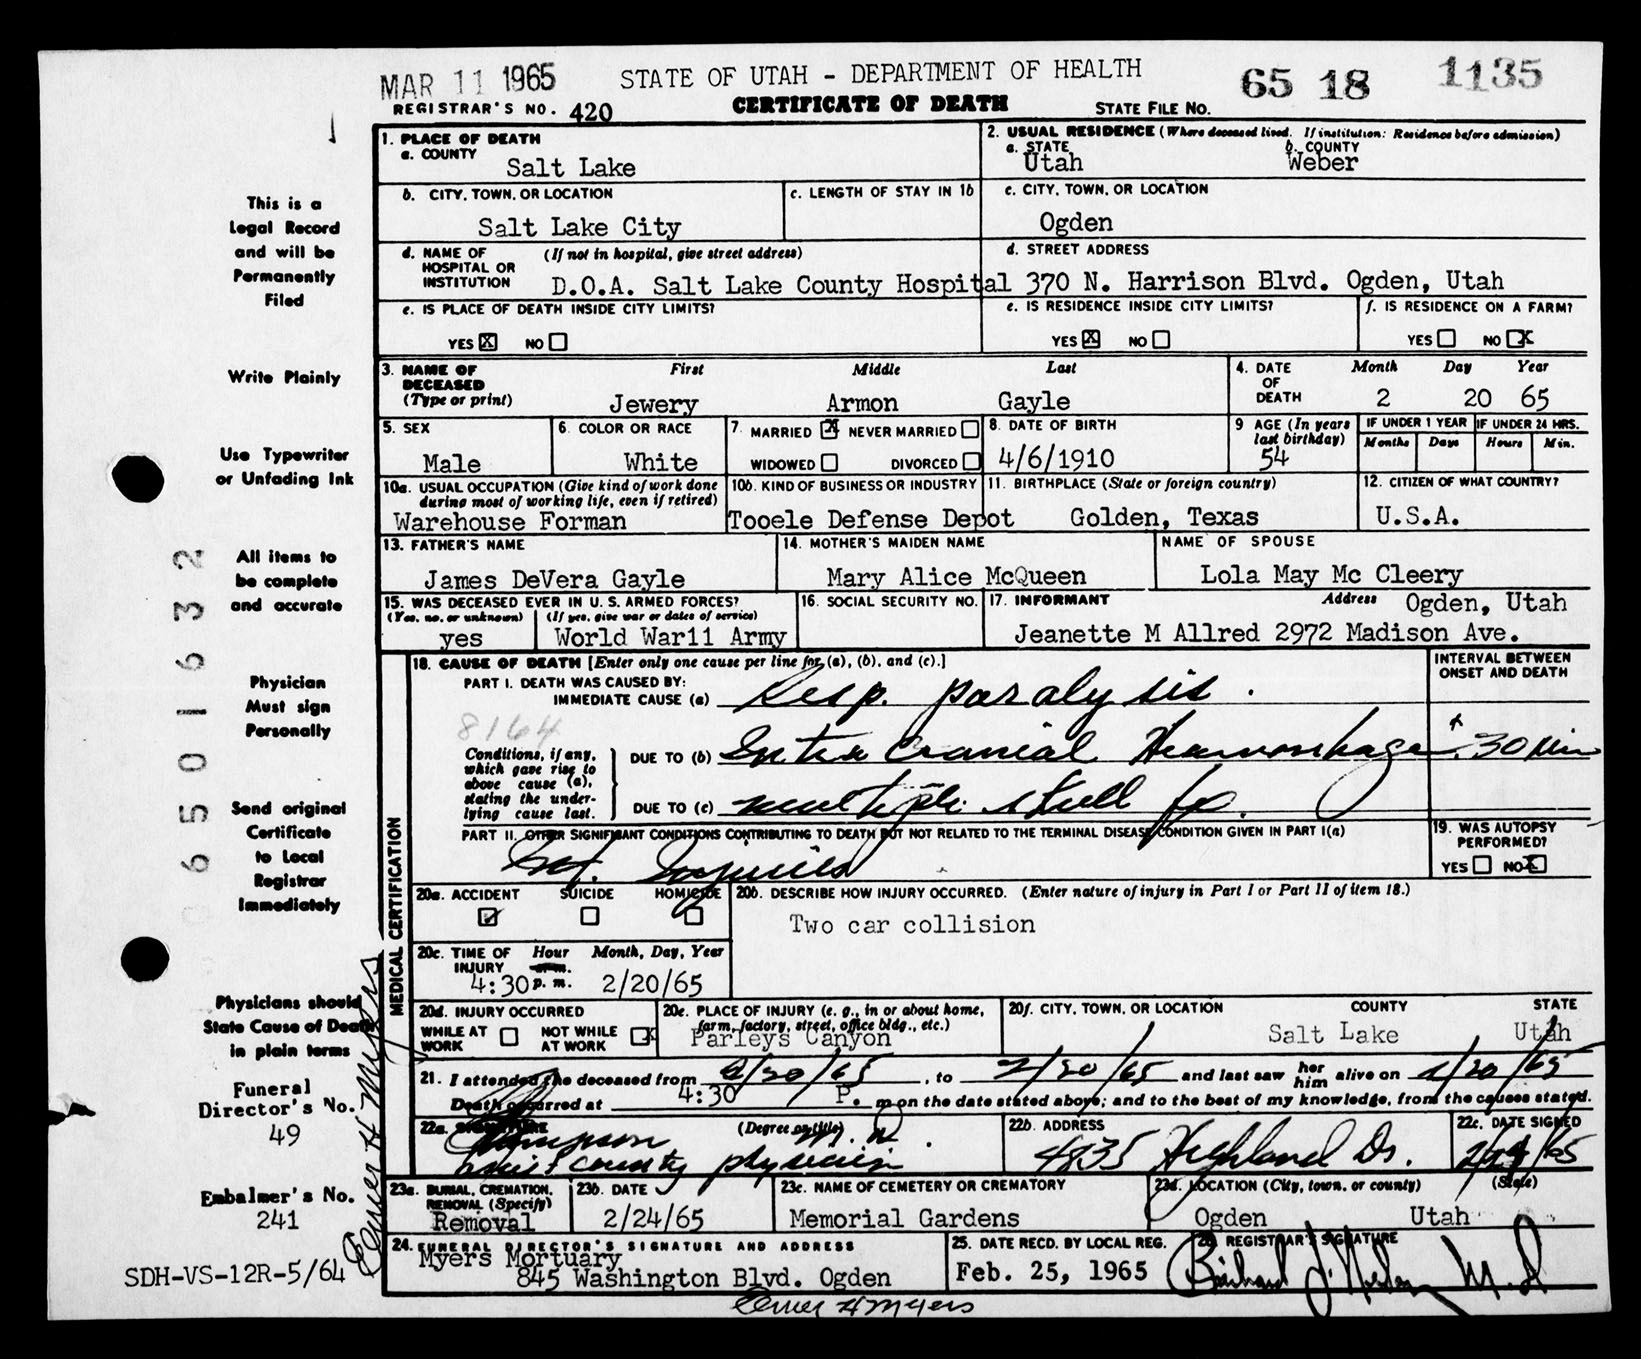 MAR 11 1965 STATE OF UTAH - DEPARTMENT OF HEALTH 65 18 1135
REGISTRAR'S NO. 420 CERTIFICATE OF DEATH STATE FILE NO.
1. PLACE OF DEATH
a. COUNTY
Salt Lake
2. USUAL RESIDENCE (Where deceased lived. If institution: Residence before admission)
a. STATE b. COUNTY
Utah Weber
b. CITY, TOWN, OR LOCATION
Salt Lake City
c. LENGTH OF STAY IN 1b
c. CITY, TOWN, OR LOCATION
Ogden
d. NAME OF (If not in hospital, give street address)
HOSPITAL OR
INSTITUTION
D.O.A. Salt Lake County Hospital
d. STREET ADDRESS
370 N. Harrison Blvd. Ogden, Utah
e. IS PLACE OF DEATH INSIDE CITY LIMITS?
YES X NO
e. IS RESIDENCE INSIDE CITY LIMITS?
YES X NO
f. IS RESIDENCE ON A FARM?
YES NO X
3. NAME OF First Middle Last
DECEASED
(Type or print)
Jewery Armon Gayle
4. DATE Month Day Year
OF
DEATH 2 20 65
5. SEX
Male
6. COLOR OR RACE
White
7. MARRIED X NEVER MARRIED
WIDOWED DIVORCED
8. DATE OF BIRTH
4/6/1910
9 AGE (In years
last birthday)
54
IF UNDER 1 YEAR IF UNDER 24 HRS.
Months Days Hours Min.
10a. USUAL OCCUPATION (Give kind of work done
during most of working life, even if retired)
Warehouse Forman
10b. KIND OF BUSINESS OR INDUSTRY
Tooele Defense Depot
11. BIRTHPLACE (State or foreign country)
Golden, Texas
12. CITIZEN OF WHAT COUNTRY?
U.S.A.
13. FATHER'S NAME
James DeVera Gayle
14. MOTHER'S MAIDEN NAME
Mary Alice McQueen
NAME OF SPOUSE
Lola May Mc Cleery
15. WAS DECEASED EVER IN U. S. ARMED FORCES?
(Yes, no, or unknown) (If yes, give war or dates of service)
yes World War11 Army
16. SOCIAL SECURITY NO.
17. INFORMANT Address Ogden, Utah
Jeanette M Allred 2972 Madison Ave.
MEDICAL CERTIFICATION
18. CAUSE OF DEATH [Enter only one cause per line for (a), (b), and (c).]
INTERVAL BETWEEN
ONSET AND DEATH
PART I. DEATH WAS CAUSED BY:
IMMEDIATE CAUSE (a) Resp. paralysis.
8164
Conditions, if any,
which gave rise to
above cause (a),
stating the under-
lying cause last.
DUE TO (b) Intra cranial Hemorrhage 30 min
DUE TO (c) multiple skull fx.
PART II. OTHER SIGNIFICANT CONDITIONS CONTRIBUTING TO DEATH BUT NOT RELATED TO THE TERMINAL DISEASE CONDITION GIVEN IN PART I(a)
Int. Injuries
19. WAS AUTOPSY
PERFORMED?
YES NO X
20a. ACCIDENT SUICIDE HOMICIDE
20b. DESCRIBE HOW INJURY OCCURRED. (Enter nature of injury in Part I or Part II of item 18.)
Two car collision
20c. TIME OF Hour Month, Day, Year
INJURY a. m.
4:30 p. m. 2/20/65
20d. INJURY OCCURRED
WHILE AT NOT WHILE X
WORK AT WORK
20e. PLACE OF INJURY (e. g., in or about home,
farm, factory, street, office bldg., etc.)
Parleys Canyon
20f. CITY, TOWN, OR LOCATION COUNTY STATE
Salt Lake Utah
21. I attended the deceased from 2/20/65, to 2/20/65 and last saw her him alive on 2/20/65
Death occurred at 4:30 P. m on the date stated above; and to the best of my knowledge, from the causes stated.
22a. SIGNATURE (Degree or title)
Thompson M. D.
Chief county physician
22b. ADDRESS
4835 Highland Dr.
22c. DATE SIGNED
23a. BURIAL, CREMATION,
REMOVAL (Specify)
Removal
23b. DATE
2/24/65
23c. NAME OF CEMETERY OR CREMATORY
Memorial Gardens
23d. LOCATION (City, town, or county) (State)
Ogden Utah
24. FUNERAL DIRECTOR'S SIGNATURE AND ADDRESS
Myers Mortuary
845 Washington Blvd. Ogden
Elmer H Myers
25. DATE RECD. BY LOCAL REG.
Feb. 25, 1965
26. REGISTRAR'S SIGNATURE
M. D
This is a
Legal Record
and will be
Permanently
Filed
Write Plainly
Use Typewriter
or Unfading Ink
All items to
be complete
and accurate
Physician
Must sign
Personally
Send original
Certificate
to Local
Registrar
Immediately
Physicians should
State Cause of Death
in plain terms
Funeral
Director's No.
49
Embalmer's No.
241
SDH-VS-12R-5/64
6501632
Elmer H Myers